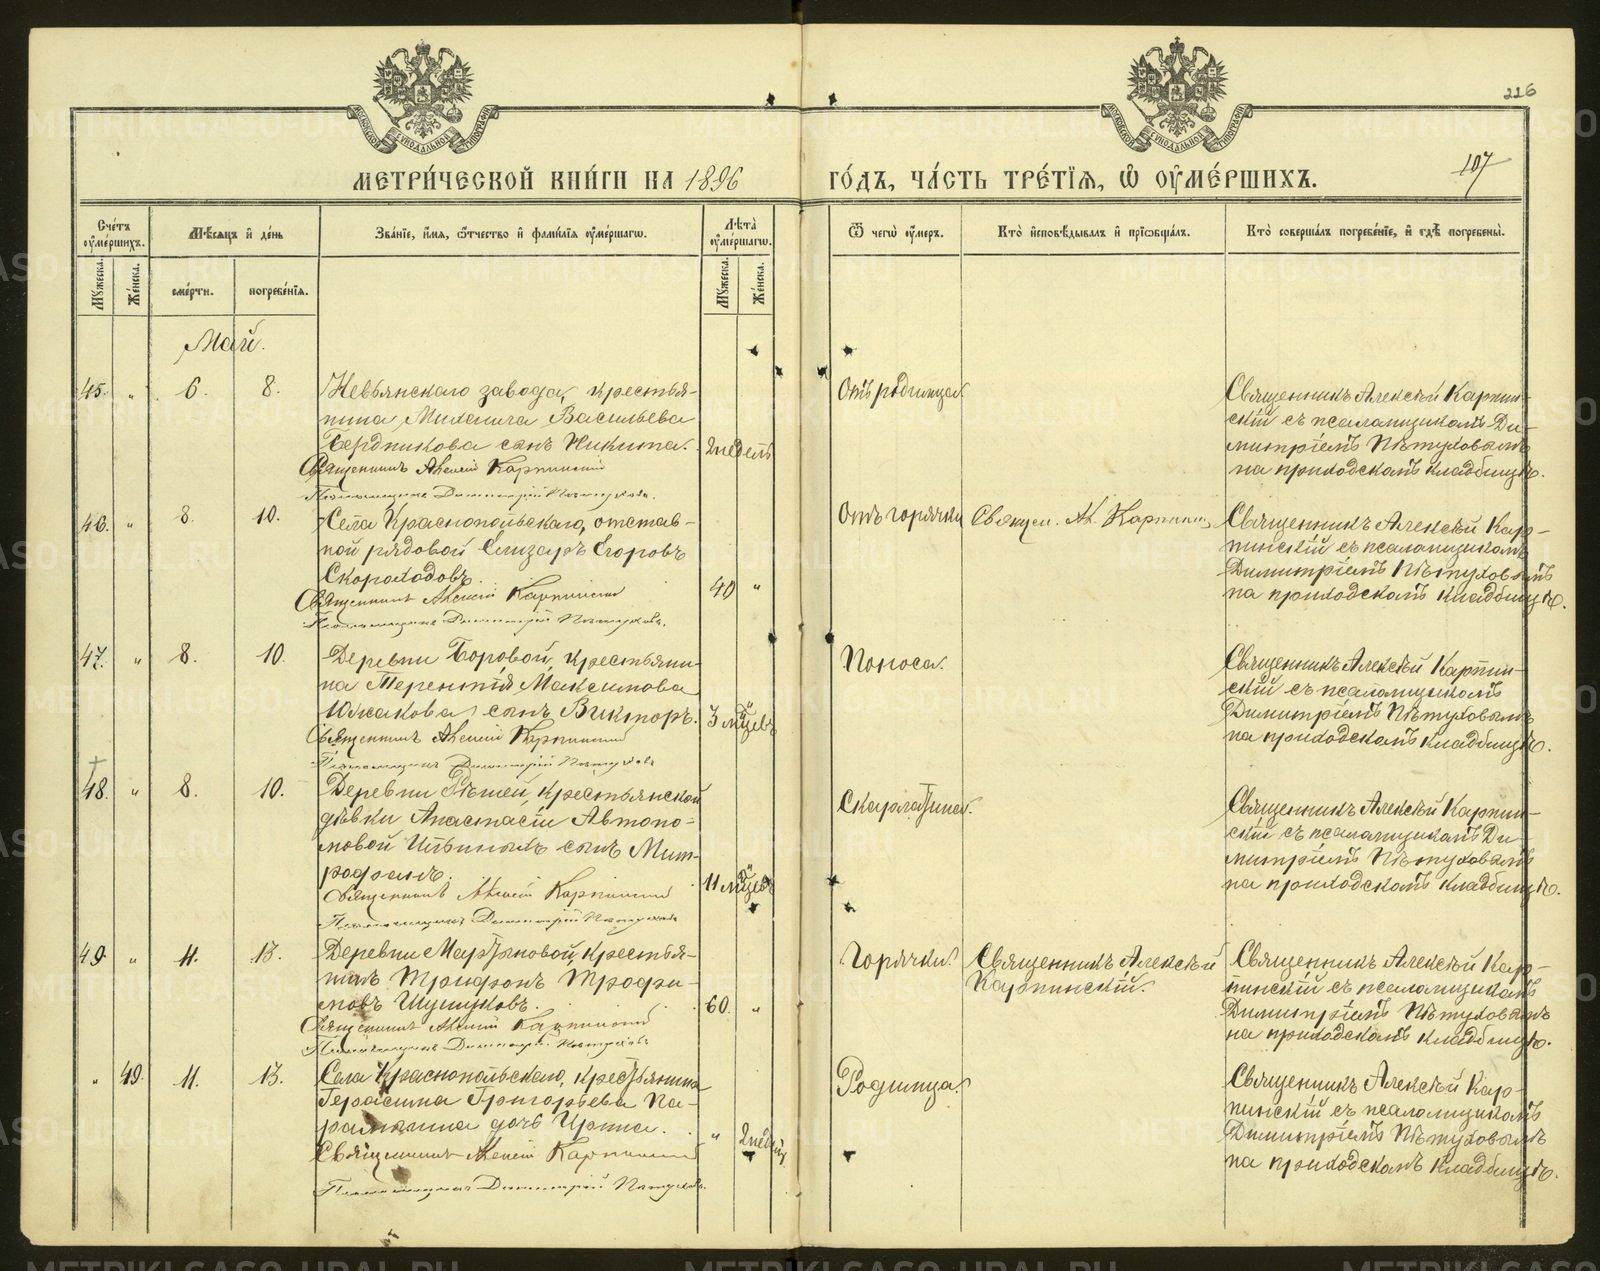 226
МОСКОВСКОЙ СѴНОДАЛЬНОЙ ТИПОГРАФІИ
МОСКОВСКОЙ СѴНОДАЛЬНОЙ ТИПОГРАФІИ
МЕТРИ́ЧЕСКОЙ КНИ́ГИ НА 1896 ГО́ДЪ, ЧА́СТЬ ТРЕ́ТІѦ, Ѡ҆ ОУ҆МЕ́РШИХЪ.
107
Сче́тъ оу҆ме́ршихъ.
Мѣ́сѧцъ и҆ де́нь
Зва́нїе, и҆́мѧ, ѻ҆́тчество и҆ фами́лїѧ оу҆ме́ршагѡ.
Лѣ́та оу҆ме́ршагѡ.
Ѿ чегѡ̀ оу҆́меръ.
Кто̀ и҆сповѣ́дывалъ и҆ прїѡбща́лъ.
Кто̀ соверша́лъ погребе́нїе, и҆ гдѣ̀ погребены̀.
Мꙋ́жеска.
Же́нска.
сме́рти.
погребе́нїѧ.
Мꙋ́жеска.
Же́нска.
Май.
45. " 6. 8.
Невьянскаго завода, крестья-
нина Михаила Васильева
Бердникова сынъ Никита. 2 недель
Священникъ Алексій Карпинскій
Псаломщикъ Димитрій Пѣтуховъ.
Отъ родимца.
Священникъ Алексѣй Карпин-
скій съ псаломщикомъ Ди-
митріемъ Пѣтуховымъ
на приходскомъ кладбищѣ.
46. " 8. 10.
Села Краснопольскаго, отстав-
ной рядовой Елизаръ Егоровъ
Скороходовъ. 40 "
Священникъ Алексій Карпинскій
Псаломщикъ Димитрій Пѣтуховъ.
Отъ горячки
Священ. Ал. Карпин.
Священникъ Алексѣй Кар-
пинскій съ псаломщикомъ
Димитріемъ Пѣтуховымъ
на приходскомъ кладбищѣ.
47. " 8. 10.
Деревни Боровой, крестьяни-
на Терентія Максимова
Южакова сынъ Викторъ. 3 мцевъ "
Священникъ Алексій Карпинскій
Псаломщикъ Димитрій Пѣтуховъ
Поноса.
Священникъ Алексѣй Карпин-
скій съ псаломщикомъ
Димитріемъ Пѣтуховымъ
на приходскомъ кладбищѣ.
48. " 8. 10.
Деревни Рѣшей, крестьянской
дѣвки Анастасіи Автоно-
мовой сынъ Мит-
рофанъ. 11 мцевъ "
Священникъ Алексій Карпинскій
Псаломщикъ Димитрій Пѣтуховъ
Скарлатина.
Священникъ Алексѣй Карпин-
скій съ псаломщикомъ Ди-
митріемъ Пѣтуховымъ
на приходскомъ кладбищѣ.
49. " 11. 13.
Деревни Мартьяновой, крестья-
нинъ Трифонъ Трофи-
мовъ 60. "
Священникъ Алексій Карпинскій
Псаломщикъ Димитрій Пѣтуховъ
Горячки.
Священникъ Алексѣй
Карпинскій.
Священникъ Алексѣй Кар-
пинскій съ псаломщикомъ
Димитріемъ Пѣтуховымъ
на приходскомъ кладбищѣ.
" 49. 11. 13.
Села Краснопольскаго, крестьянина
Герасима Григорьева Па-
дочь Ирина. " 2 недѣль
Священникъ Алексій Карпинскій
Псаломщикъ Димитрій Пѣтуховъ.
Родимца.
Священникъ Алексѣй Кар-
пинскій съ псаломщикомъ
Димитріемъ Пѣтуховымъ
на приходскомъ кладбищѣ.
METRIKI.GASO-URAL.RU